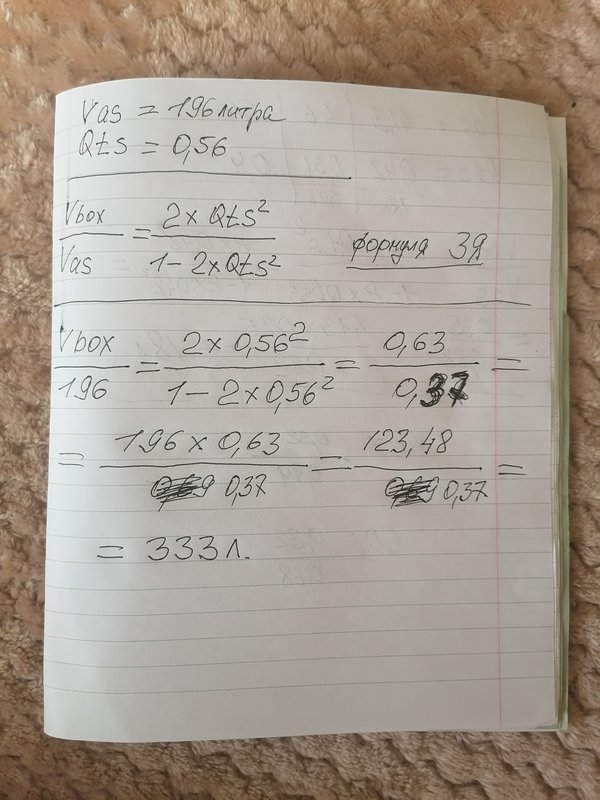 Vas = 196 литра
Qts = 0,56
Vbox/Vas = 2 x Qts²/1 - 2 x Qts² формула ЗЯ
Vbox/196 = 2 x 0,56²/1 - 2 x 0,56² = 0,63/0,37 =
= 196 x 0,63/0,37 = 123,48/0,37 =
= 333 л.